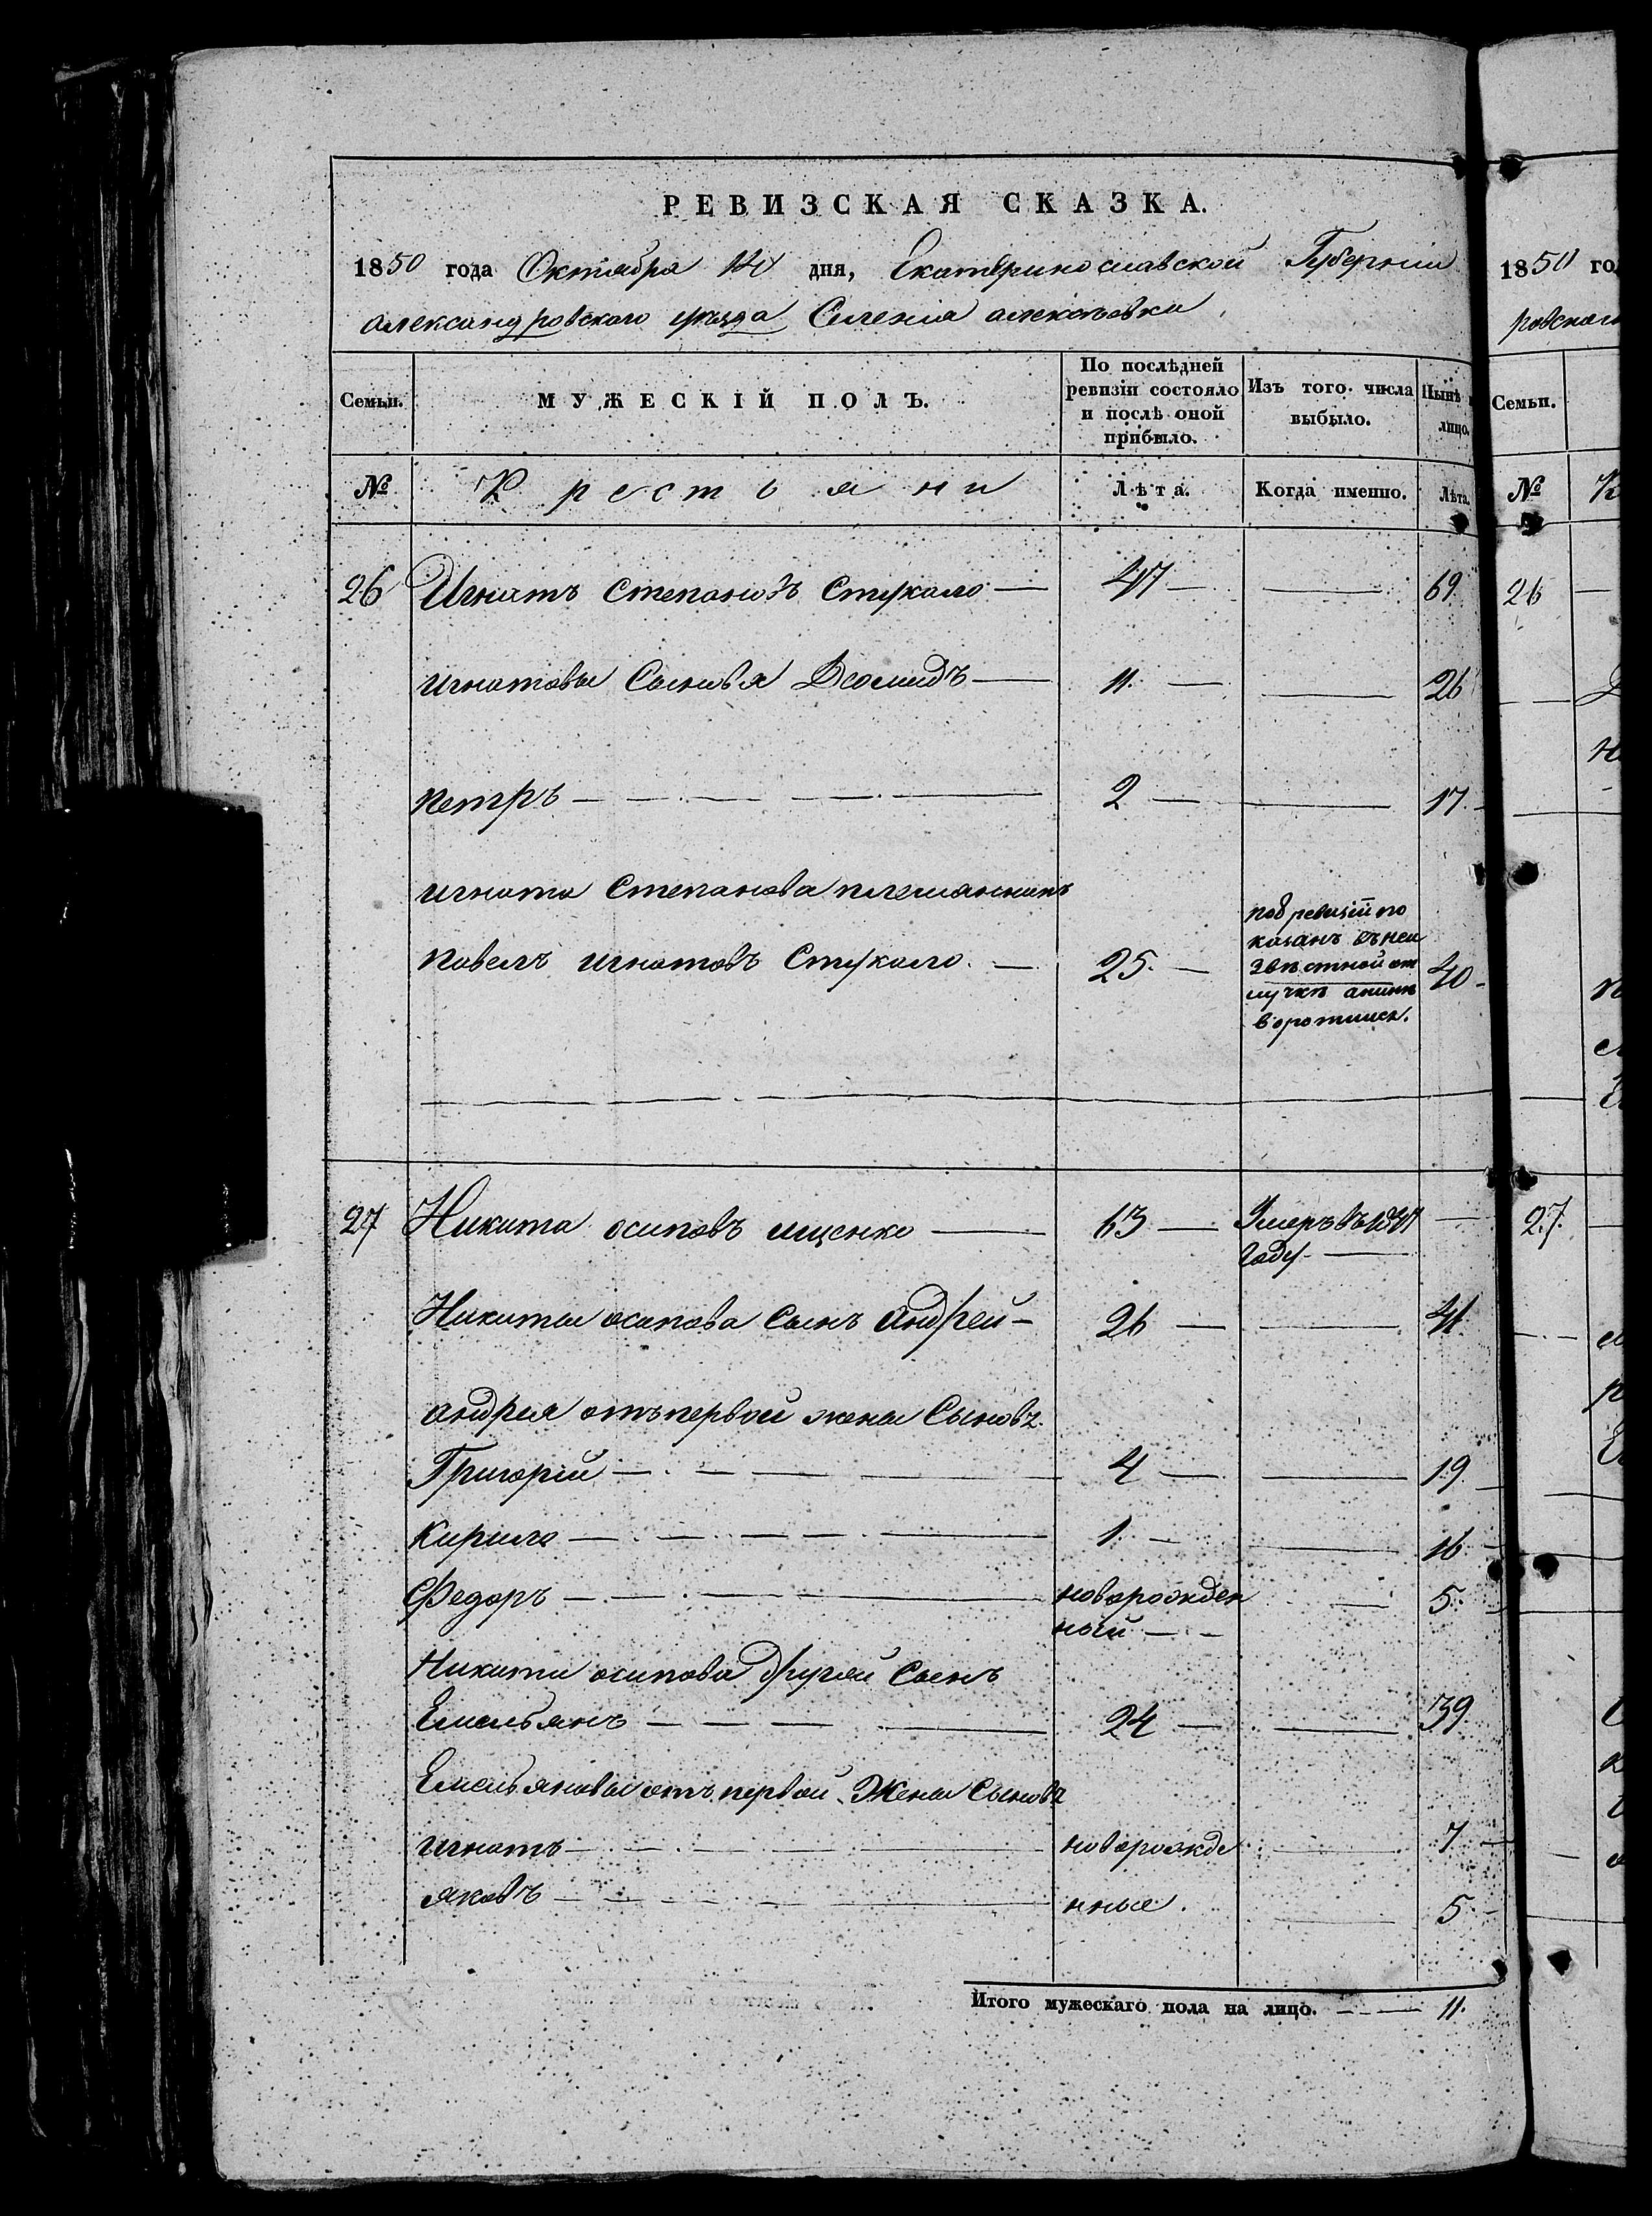 РЕВИЗСКАЯ СКАЗКА.
1850 года Октября дня, Екатеринославской Губерніи
Александровского уезда Селенія алексеевки
Семьи. МУЖЕСКІЙ ПОЛЪ. По послѣдней ревизіи состояло и послѣ оной прибыло. Изъ того числа выбыло. Нынѣ лицо.
№ Крестьяни Лѣта. Когда именно. Лѣта.
26 Игнатъ Степановъ Стукало — 47 — — 69
игнатовы Сыновья Деомидъ — 11. — — 26
петръ — 2 — — 17.
игната Степанова племянникъ
павелъ игнатовъ Стукало. — 25. — 40
по 8 ревизіи по
казанъ въ неи
звѣстной от
лучкѣ а нынѣ
воротился.
27 Никита осиповъ ищенко — 63 — Умеръ въ
году — —
Никиты осипова Сынъ андрей — 26 — — 41
андрея отъ первой жены Сыновъ
Григорій — 4 — — 19
Кирило — 1. — — 16
Федоръ — новорожден — 5.
ный — —
Никиты осипова другой Сынъ
Емельянъ — 24 — — 39
Емельяновы отъ первой Жены Сыновъ
игнатъ — новорожде — 7
яковъ — нные. — 5
Итого мужескаго пола на лицо. — 11.
1850 го
ровского
Семьи.
№
26
27.